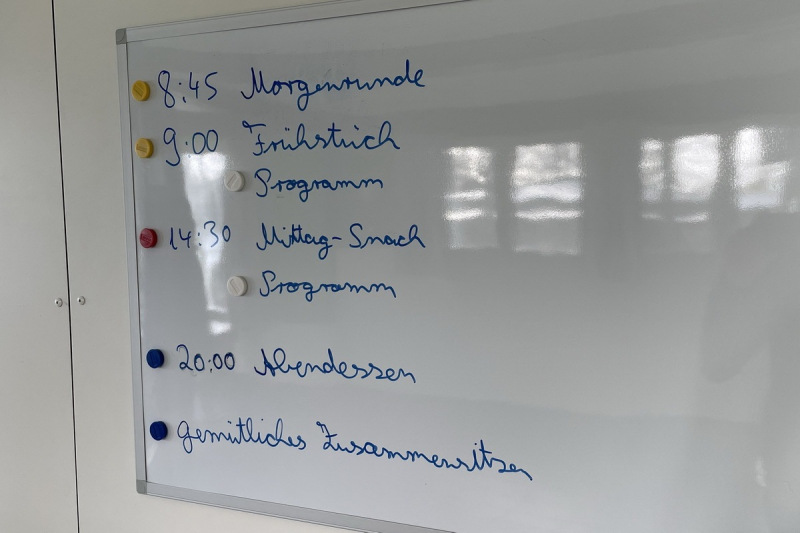 8:45 Morgenrunde
9:00 Frühstück
Programm
14:30 Mittag-Snack
Programm
20:00 Abendessen
gemütliches Zusammensitzen